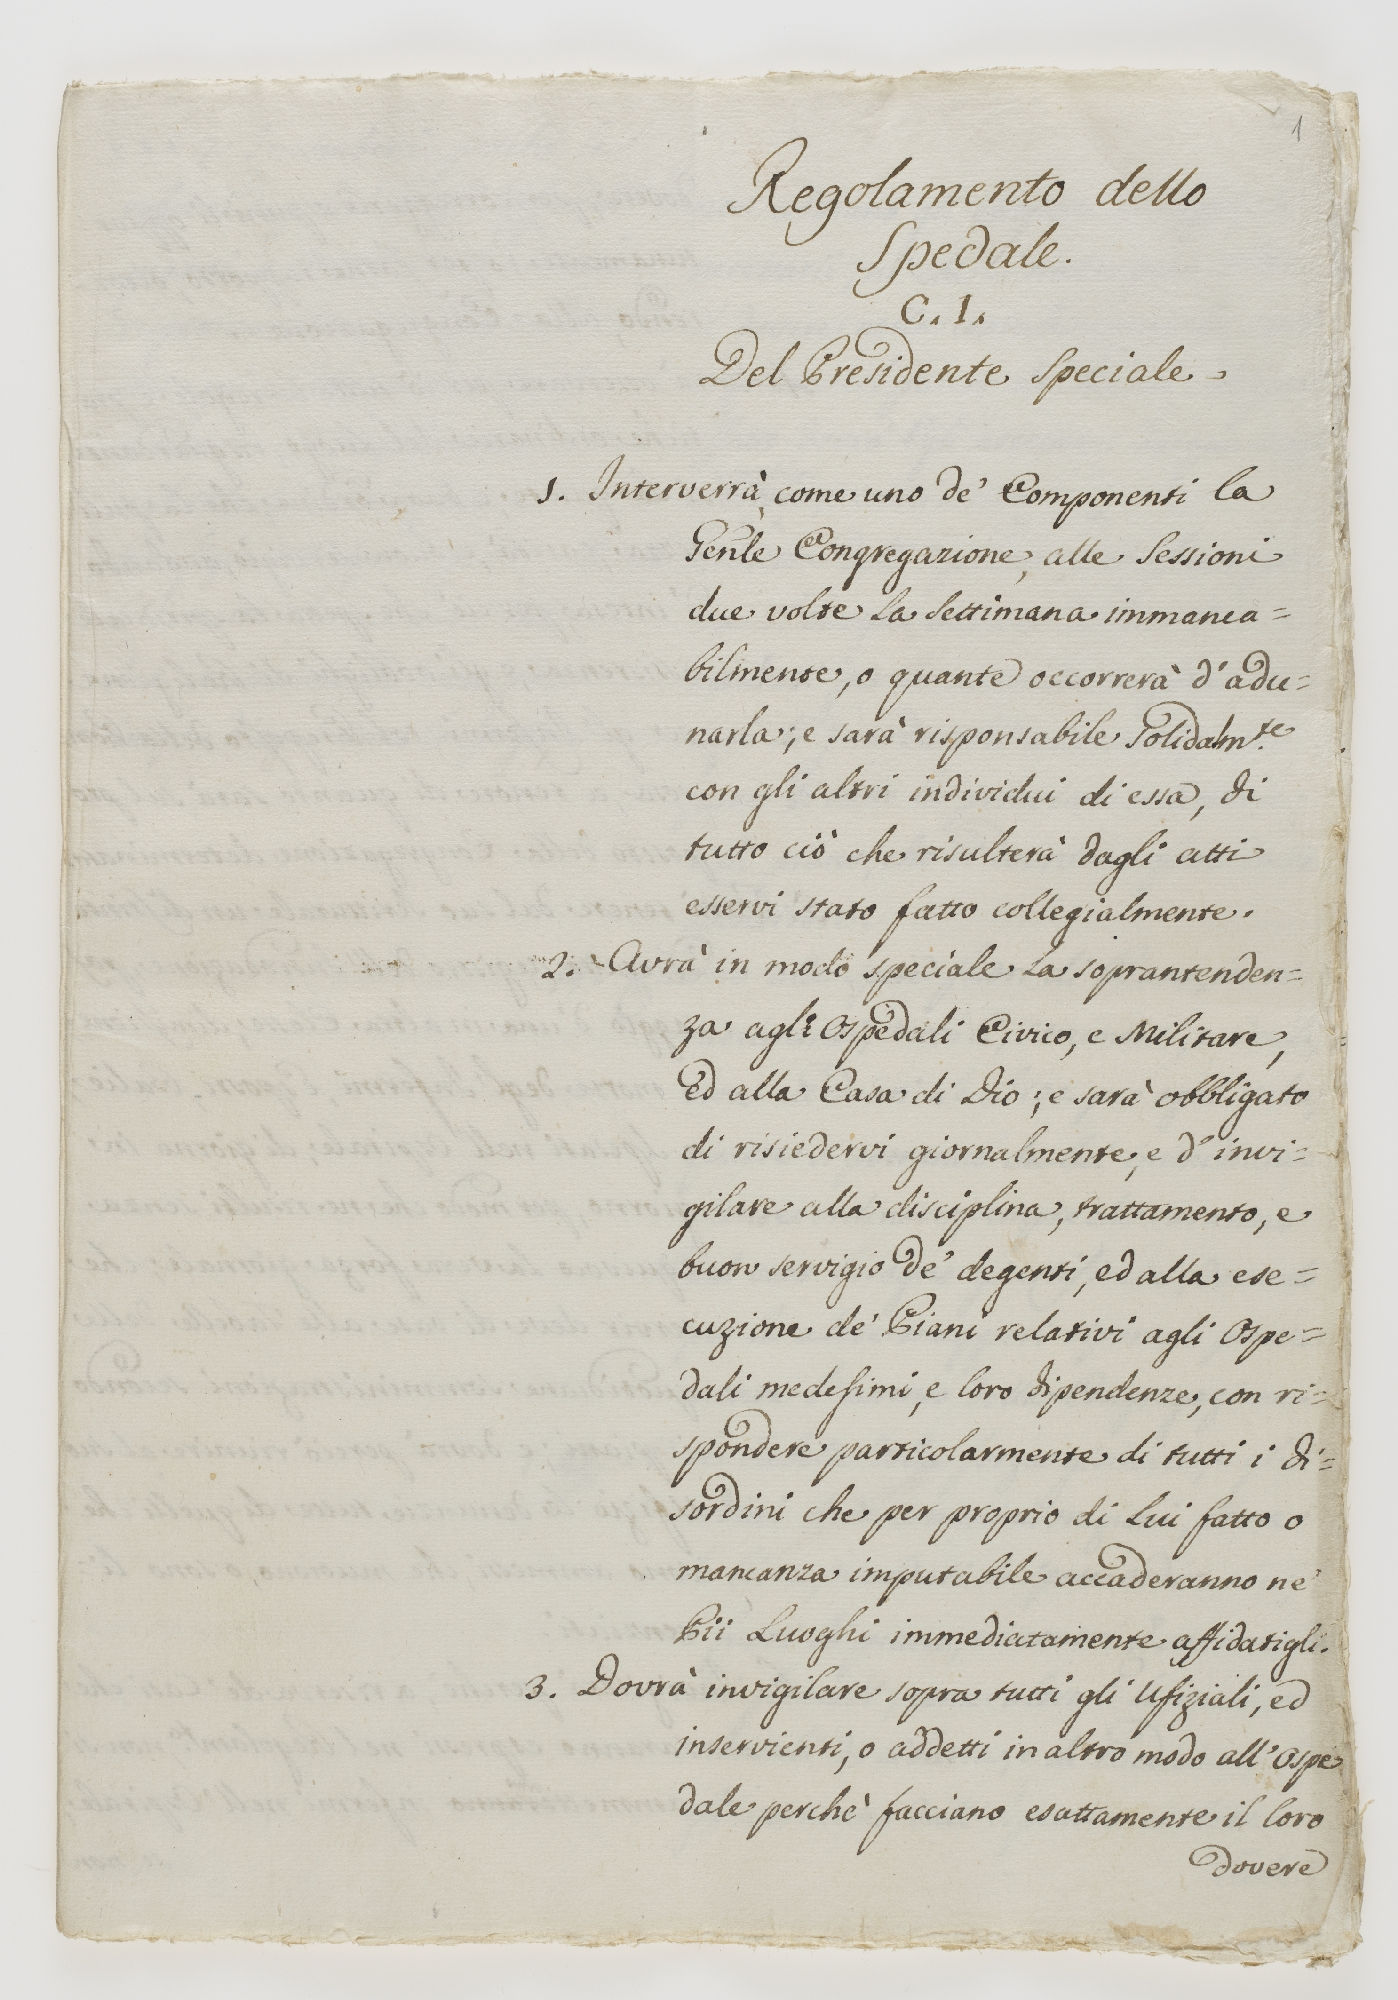 1
Regolamento dello
Spedale.
C. 1.
Del Presidente Speciale
1. Interverrà, come uno de' Componenti la
Gen̄le Congregazione, alle Sessioni
due volte la Settimana immanca=
bilmente, o quante occorrerà d'adu=
narla; e sarà risponsabile Solidalm.te
con gli altri individui di essa, di
tutto ciò che risulterà dagli atti
esservi stato fatto collegialmente.
2. Avrà in modo speciale la soprantenden=
za agli Ospedali Civico, e Militare,
Ed alla Casa di Dio; e sarà obbligato
di risiedervi giornalmente, e d'invi=
gilare alla disciplina, trattamento, e
buon servigio de' degenti, ed alla ese=
cuzione de' Piani relativi agli Ospe=
dali medesimi, e loro dipendenze, con ri=
spondere particolarmente di tutti i di=
sordini che per proprio di Lui fatto o
mancanza imputabile accaderanno ne'
Pii Luoghi immediatamente affidatigli.
3. Dovrà invigilare sopra tutti gli Ufiziali, ed
inservienti, o addetti in altro modo all'Ospe
dale perchè facciano esattamente il loro
dovere